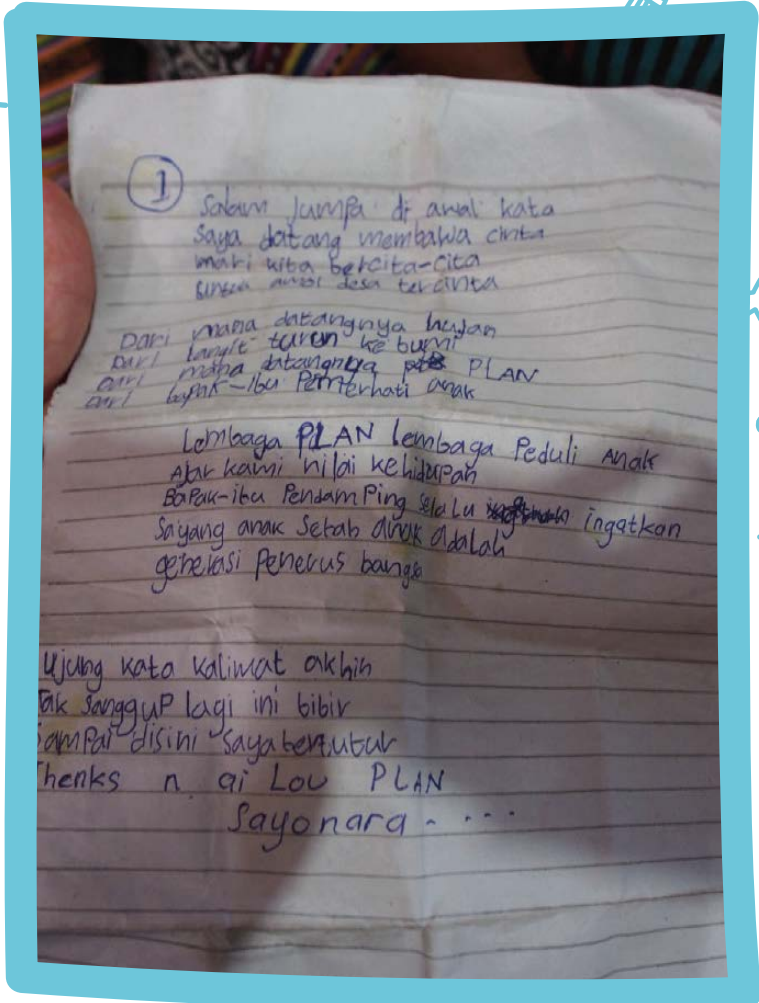 1
Salam Jumpa di awal kata
Saya datang membawa cinta
mari kita bercita-cita
desa tercinta
Dari mana datangnya hujan
Dari langit turun ke bumi
Dari mana datangnya PLAN
Dari bapak-ibu Pemerhati anak
Lembaga PLAN lembaga Peduli Anak
Ajar kami nilai kehidupan
Bapak-ibu Pendamping selalu ingatkan
Sayang anak Sebab anak adalah
generasi Penerus bangsa
Ujung kata kalimat akhir
Tak SanggUP lagi ini bibir
Sampai disini Saya bertutur
Thenks n ai Lov PLAN
Sayonara - ....